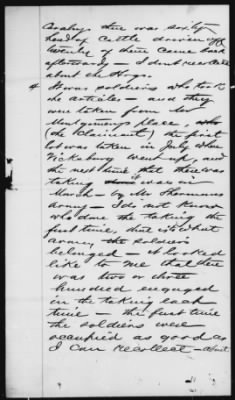 there was sixty
head of Cattle driven off
twenty of them came back
afterwards – I dont recollect
about the Hogs.
4 It was soldiers who took
the articles – and they
were taken from Mr
Montgomery's place,
(the Claimant) the first
lot was taken in July when
Vicksburg went up, and
the next time that there was
taking it was in
March – by
Army – I do not know
who done the taking the
first time, that is what
army, the soldiers
belonged – it looked
like to me that there
was two or three
hundred engaged
in the taking each
time – the first time
the soldiers were
occupied as good as
I can recollect – about